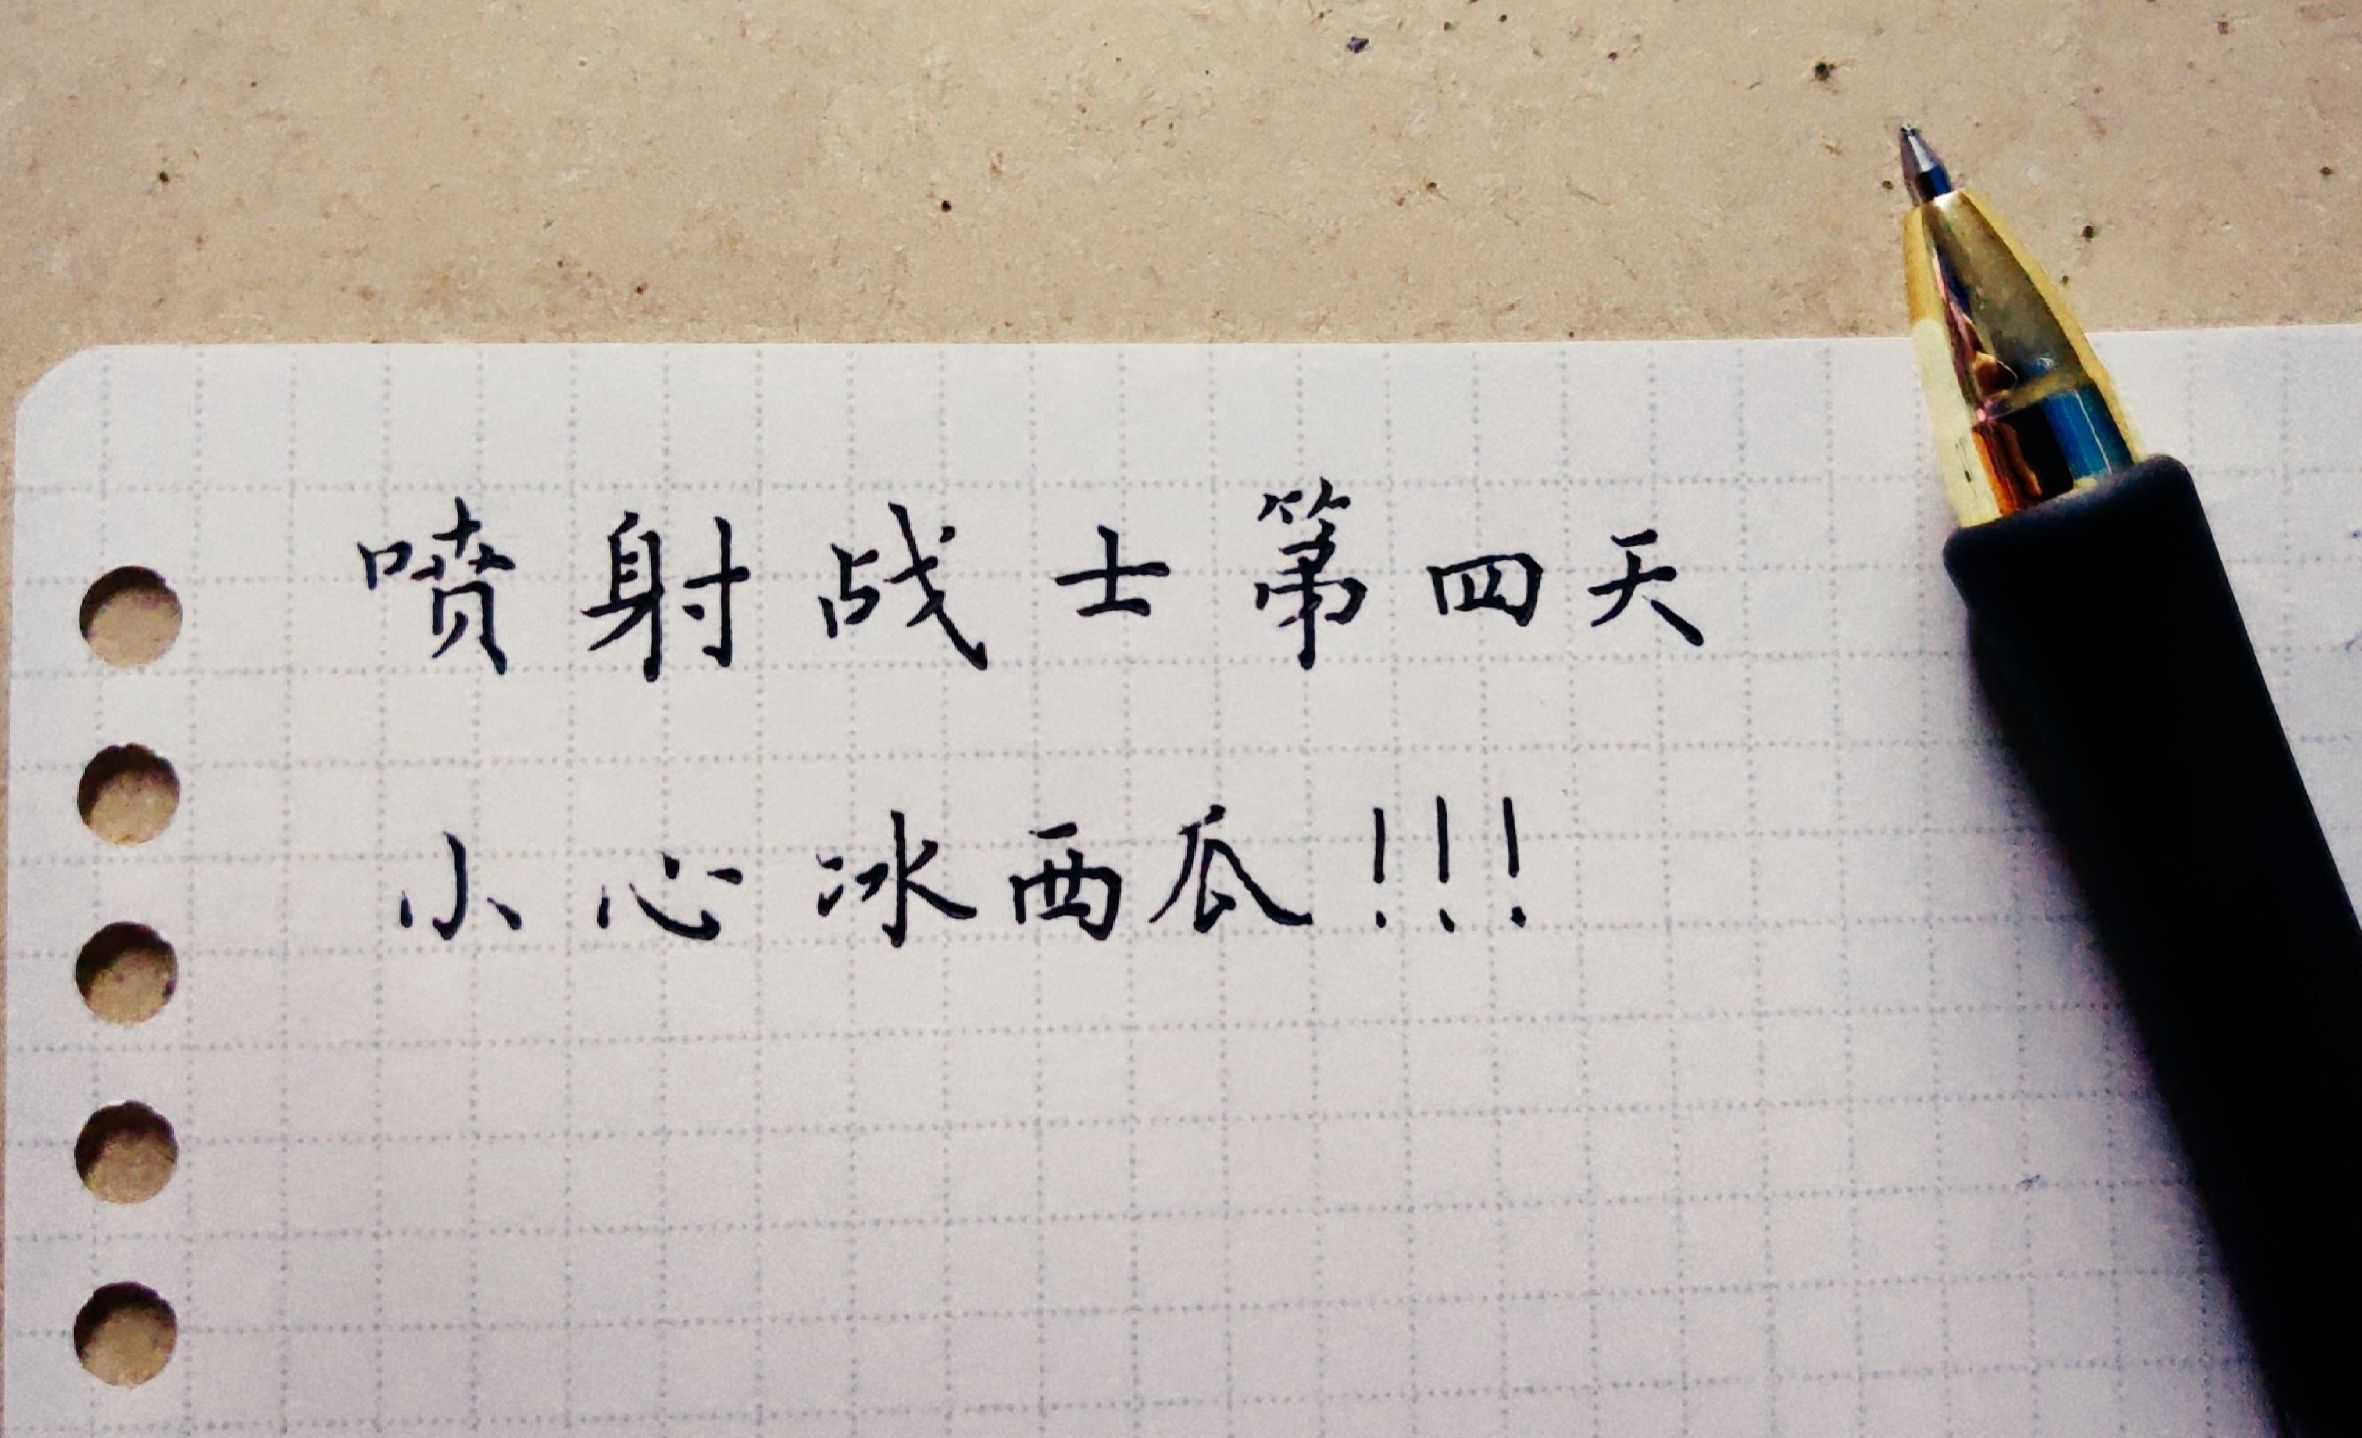 喷射战士第四天
小心冰西瓜!!!